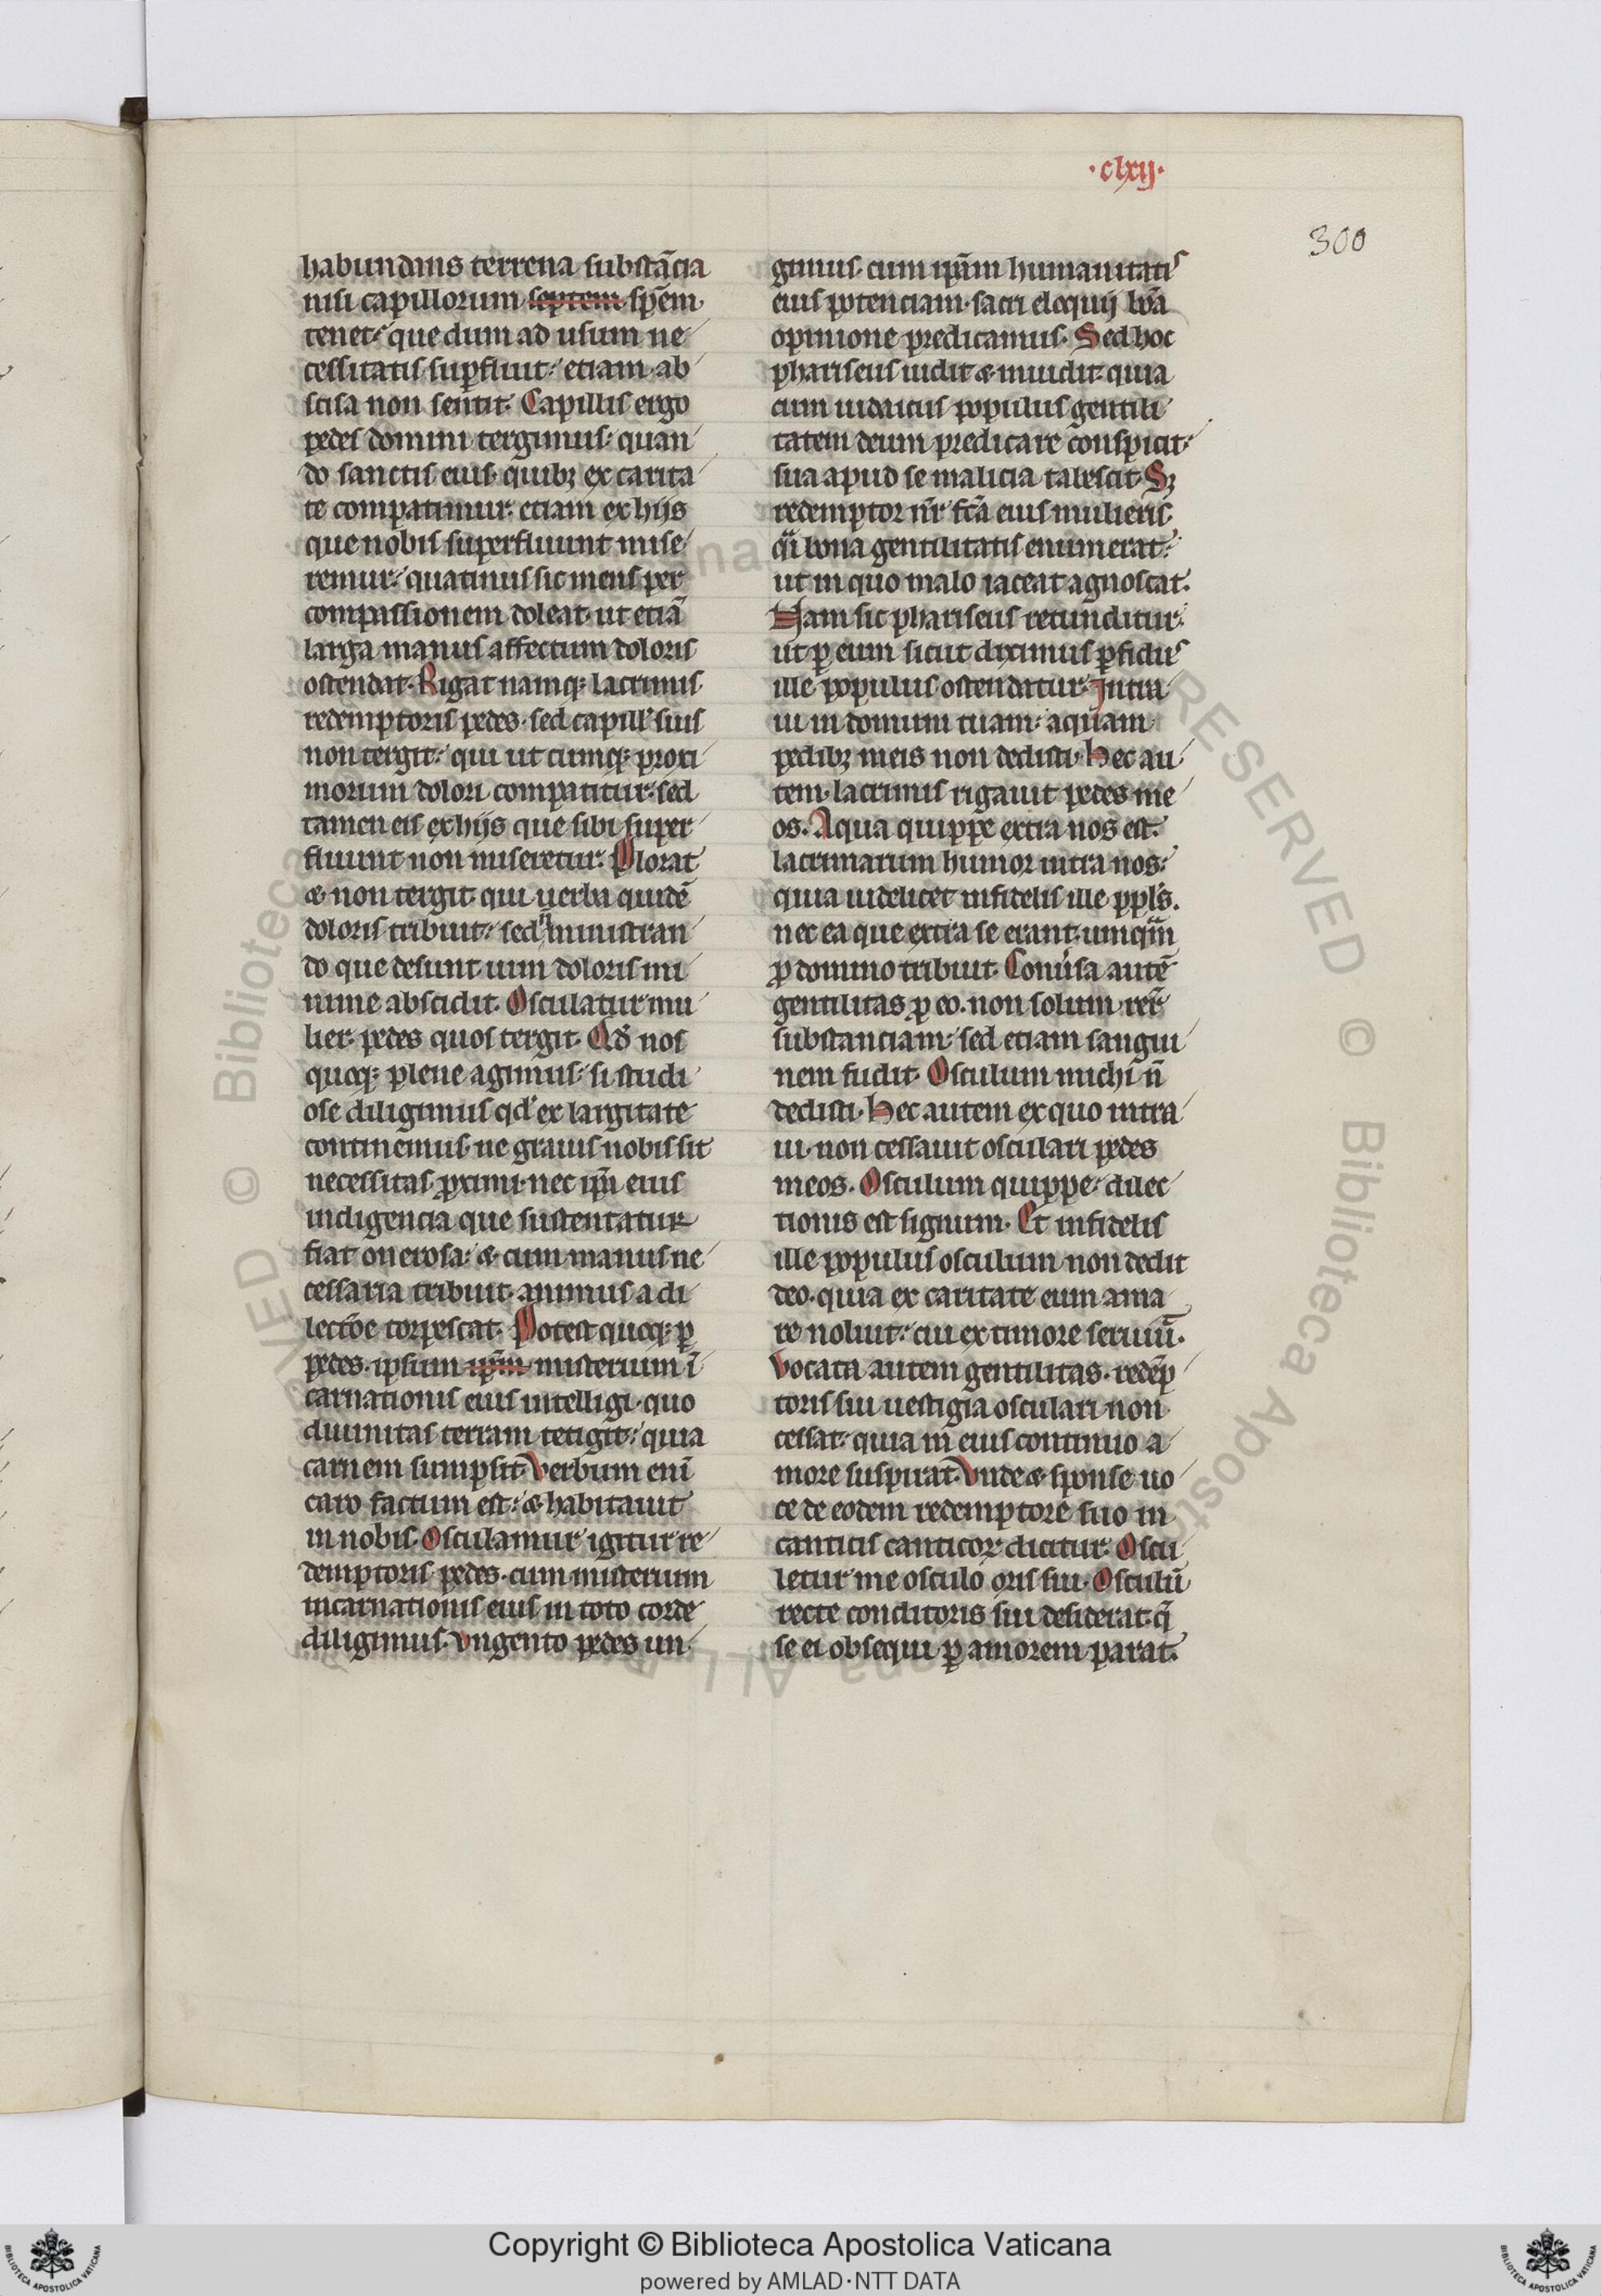 ·clxij·
300
habundans terrena substãcia
nisi capillorum septem spẽm
tenet· que dum ad usum ne
cessitatis suꝑfluit· etiam ab
scisa non sentit· Capillis ergo
pedes domini tergimus· quan
do sanctis eius· quibꝫ ex carita
te compatimur· etiam ex hijs
que nobis superfluunt mise
remur· quatinus sic mens per
compassionem doleat· ut etiã
larga manus affectum doloris
ostendat· Rigat namqꝫ lacrimis
redemptoris pedes· sed capill' suis
non tergit· qui ut cumqꝫ proxi
morum dolori compatitur· sed
tamen eis ex hijs que sibi super
fluunt non miseretur· Plorat
& non tergit· qui uerba quidẽ
doloris tribuit· sed n̄ ministran
do que desunt uim doloris mi
nime abscidit· Osculatur mu
lier· pedes quos tergit· Qđ nos
quoqꝫ plene agimus· si studi
ose diligimus qđ' ex largitate
continemus· ne grauis nobis sit
necessitas ꝓximi· nec ip̃a eius
indigencia que sustentatur
fiat onerosa· & cum manus ne
cessaria tribuit· animus a di
lectõe torpescat· Potest quoqꝫ ꝑ
pedes· ipsum ip̃m misterium ĩ
carnationis eius intelligi· quo
diuinitas terram tetigit· quia
carnem sumpsit· Verbum enĩ
caro factum est· & habitauit
in nobis· Osculamur igitur re
demptoris pedes· cum misterium
incarnationis eius in toto corde
diligimus· Vngento pedes un
gimus· cum ip̃am humanitatis
eius potenciam· sacri eloquij bõa
opinione predicamus· Sed hoc
phariseus uidit & inuidit· quia
cum iudaicus populus gentili
tatem deum predicare conspicit·
sua apud se malicia tabescit· Sꝫ
redemptor nr̃ fc̃a eius mulieris·
q̃i bona gentilitatis enumerat·
ut in quo malo iaceat agnoscat·
Nam sic phariseus retunditur·
ut ꝑ eum sicut diximus ꝑfidus
ille populus ostendatur· Intra
ui in domum tuam· aquam
pedibꝫ meis non dedisti· Hec au
tem· lacrimis rigauit pedes me
os· Aqua quippe extra nos est·
lacrimarum humor intra nos·
quia uidelicet infidelis ille ppl's·
nec ea que extra se erant· umqm̃
ꝓ domino tribuit· Conũsa autẽ
gentilitas ꝓ eo· non solum rer̃
substanciam· sed etiam sangui
nem fudit· Osculum michi n̄
dedisti· Hec autem ex quo intra
ui· non cessauit osculari pedes
meos· Osculum quippe· dilec
tionis est signum· Et infidelis
ille populus osculum non dedit
deo· quia ex caritate eum ama
re noluit· cui ex timore seruiũ·
Vocata autem gentilitas· redẽp
toris sui uestigia osculari non
cessat· quia in eius continuo a
more suspirat· Vnde & sponse uo
ce de eodem redemptore suo in
canticis canticoꝝ dicitur· Oscu
letur me osculo oris sui· Osculũ
recte conditoris sui desiderat· q̃
se ei obsequi ꝑ amorem parat·
Copyright © Biblioteca Apostolica Vaticana
powered by AMLAD·NTT DATA